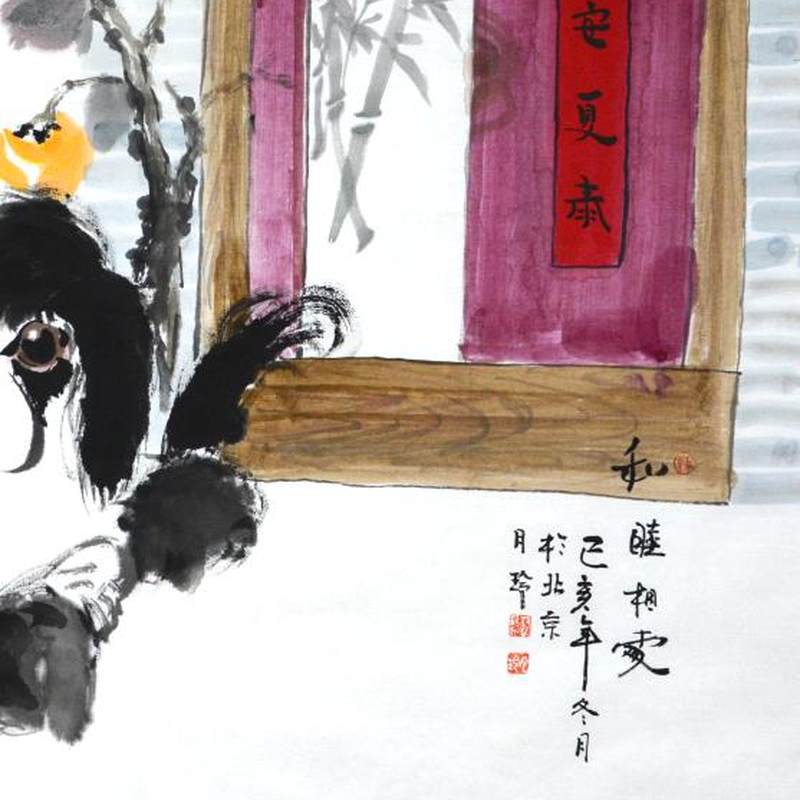 安夏泰
和睦相處
己亥年冬月
於北京
月琴